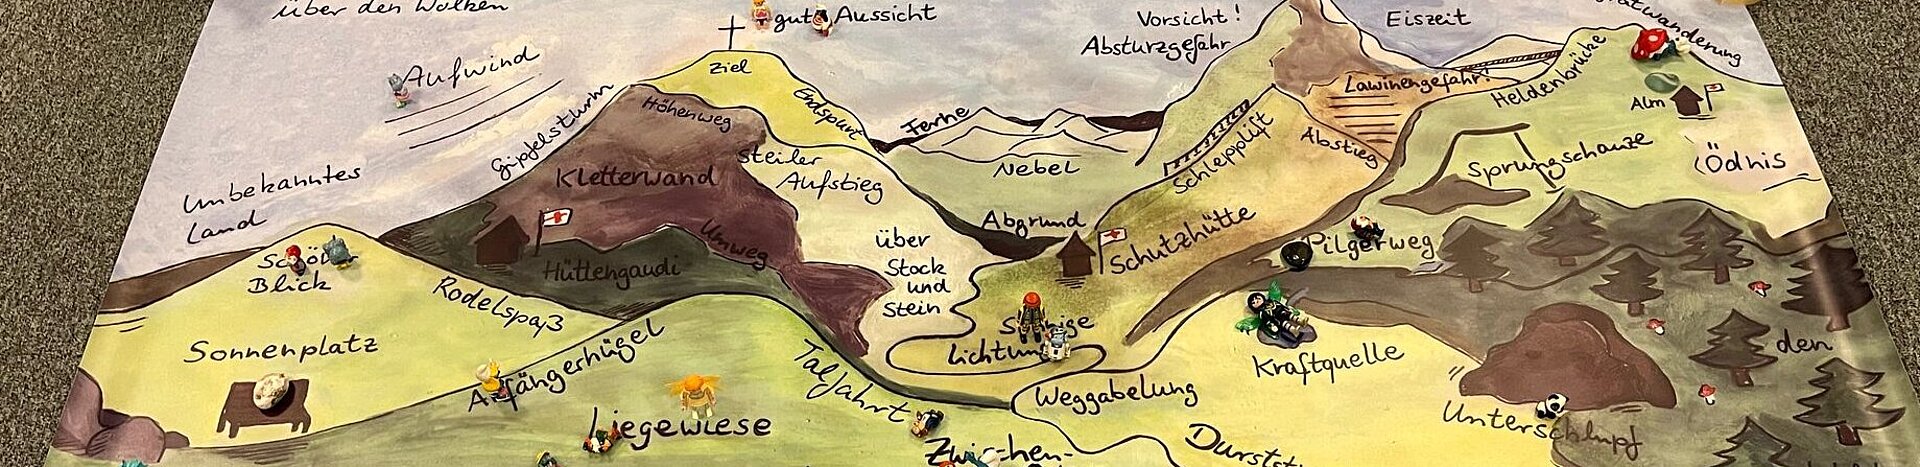 über den Wolken
gute Aussicht
Vorsicht!
Absturzgefahr
Eiszeit
Gratwanderung
Aufwind
Ziel
Höhenweg
Endspurt
Ferne
Lawinengefahr!
Heldenbrücke
Alm
Gipfelsturm
Kletterwand
steiler
Aufstieg
Nebel
Schlepplift
Abstieg
Sprungschanze
Ödnis
Unbekanntes
Land
Umweg
über
Stock
und
Stein
Abgrund
Schutzhütte
Pilgerweg
Schöner
Blick
Hüttengaudi
Rodelspaß
Sonnige
Lichtung
Sonnenplatz
Anfängerhügel
Talfahrt
Weggabelung
Kraftquelle
den
Liegewiese
Unterschlupf
Zwischen-